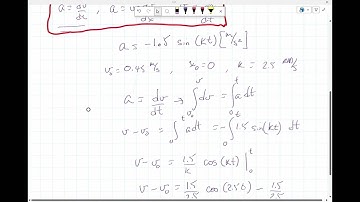 a = dv/dt , a = v dv/dx
a = -1.5 sin(kt) [m/s²]
v₀ = 0.45 m/s , x₀ = 0 , k = 2.5 rad/s
a = dv/dt → ∫ᵥ₀ᵛ dv = ∫₀ᵗ a dt
v - v₀ = ∫₀ᵗ a dt = -∫₀ᵗ 1.5 sin(kt) dt
v - v₀ = 1.5/k cos(kt) |₀ᵗ
v - v₀ = 1.5/2.5 cos(2.5t) - 1.5/2.5